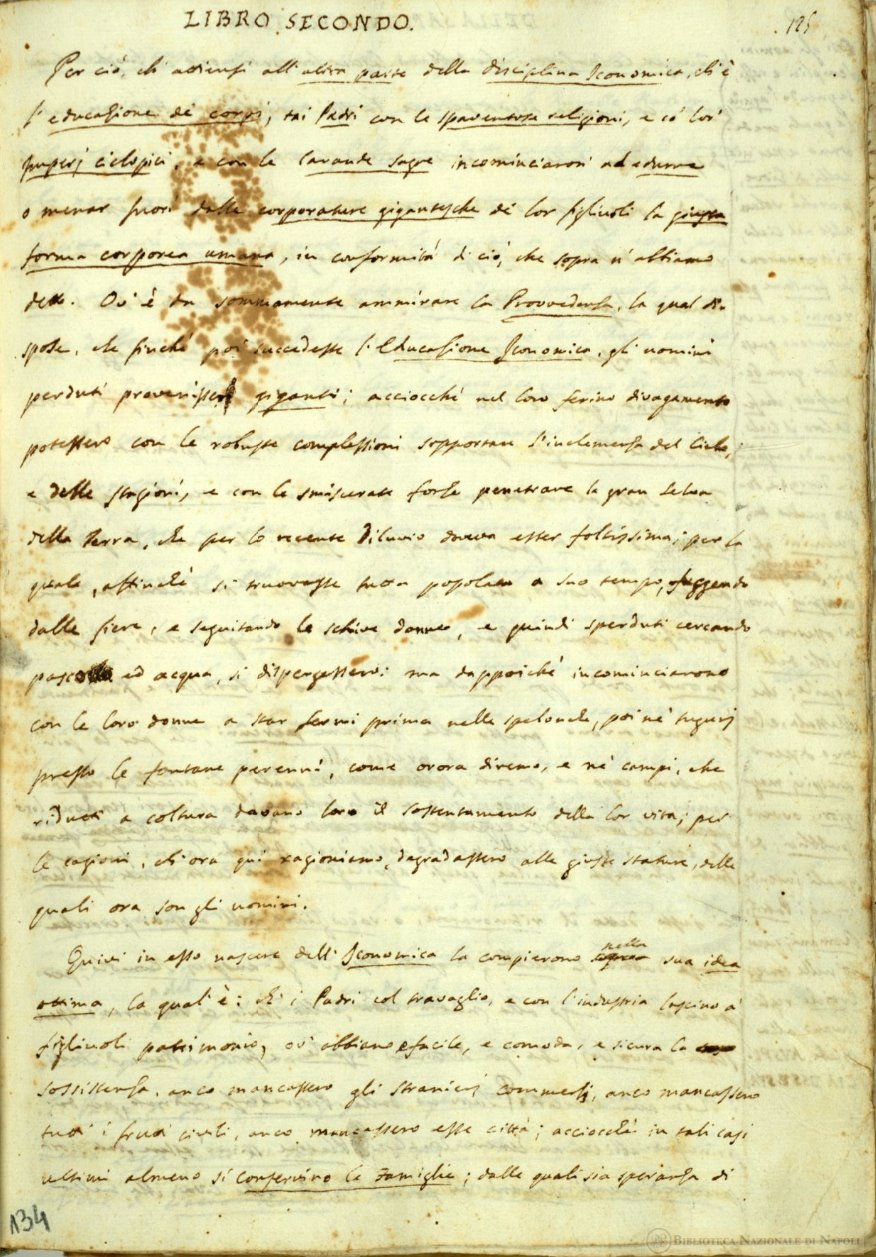 LIBRO SECONDO.
125
Per ciò, ch'attiensi all'altra parte della disciplina Iconomica, ch'è
l'educazione de' corpi, tai Padri con le spaventose religioni, e co' lor'
imperj ciclopici, e con le lavande sagre incominciaron' ad edurre
o menar fuori dalle corporature gigantesche de' lor figliuoli la giusta
forma corporea umana, in conformità di ciò, che sopra n'abbiamo
detto. Ov'è da sommamente ammirare la Provvedenza, la qual di-
spose, che finché poi succedesse l'Educazione Iconomica, gli uomini
perduti provenissero giganti; acciocché nel loro ferino divagamento
potessero con le robuste complessioni sopportare l'inclemenza del Cielo,
e delle stagioni, e con le smisurate forze penetrare la gran selva
della Terra, che per lo recente Diluvio doveva esser foltissima; per la
quale, affinché si truovasse tutta popolata a suo tempo, fuggendo
dalle fiere, e seguitando le schive donne, e quindi sperduti cercando
pascolo ed acqua, si dispergessero: ma dappoiché incominciarono
con le loro donne a star fermi prima nelle spelonche, poi ne' tugurj
presso le fontane perenni, come ovora diremo, e ne' campi, che
ridutti a coltura davano loro il sostentamento della lor vita; per
le cagioni, ch'ora qui ragioniamo, dagradassero alle giuste stature, delle
quali ora son gli uomini.
Quivi in esso nascere dell'Iconomica la compierono nella sua idea
ottima, la qual'è: ch'i Padri col travaglio, e con l'industria lascino a'
figliuoli patrimonio, ov'abbiano e facile, e comoda, e sicura la
sossistenza, anco mancassero gli stranieri commerzj, anco mancassero
tutti i frutti civili, anco mancassero esse città; acciocchè in tali casi
ultimi almeno si conservino le Famiglie; dalle quali sia speranza di
134
BIBLIOTECA NAZIONALE DI NAPOLI